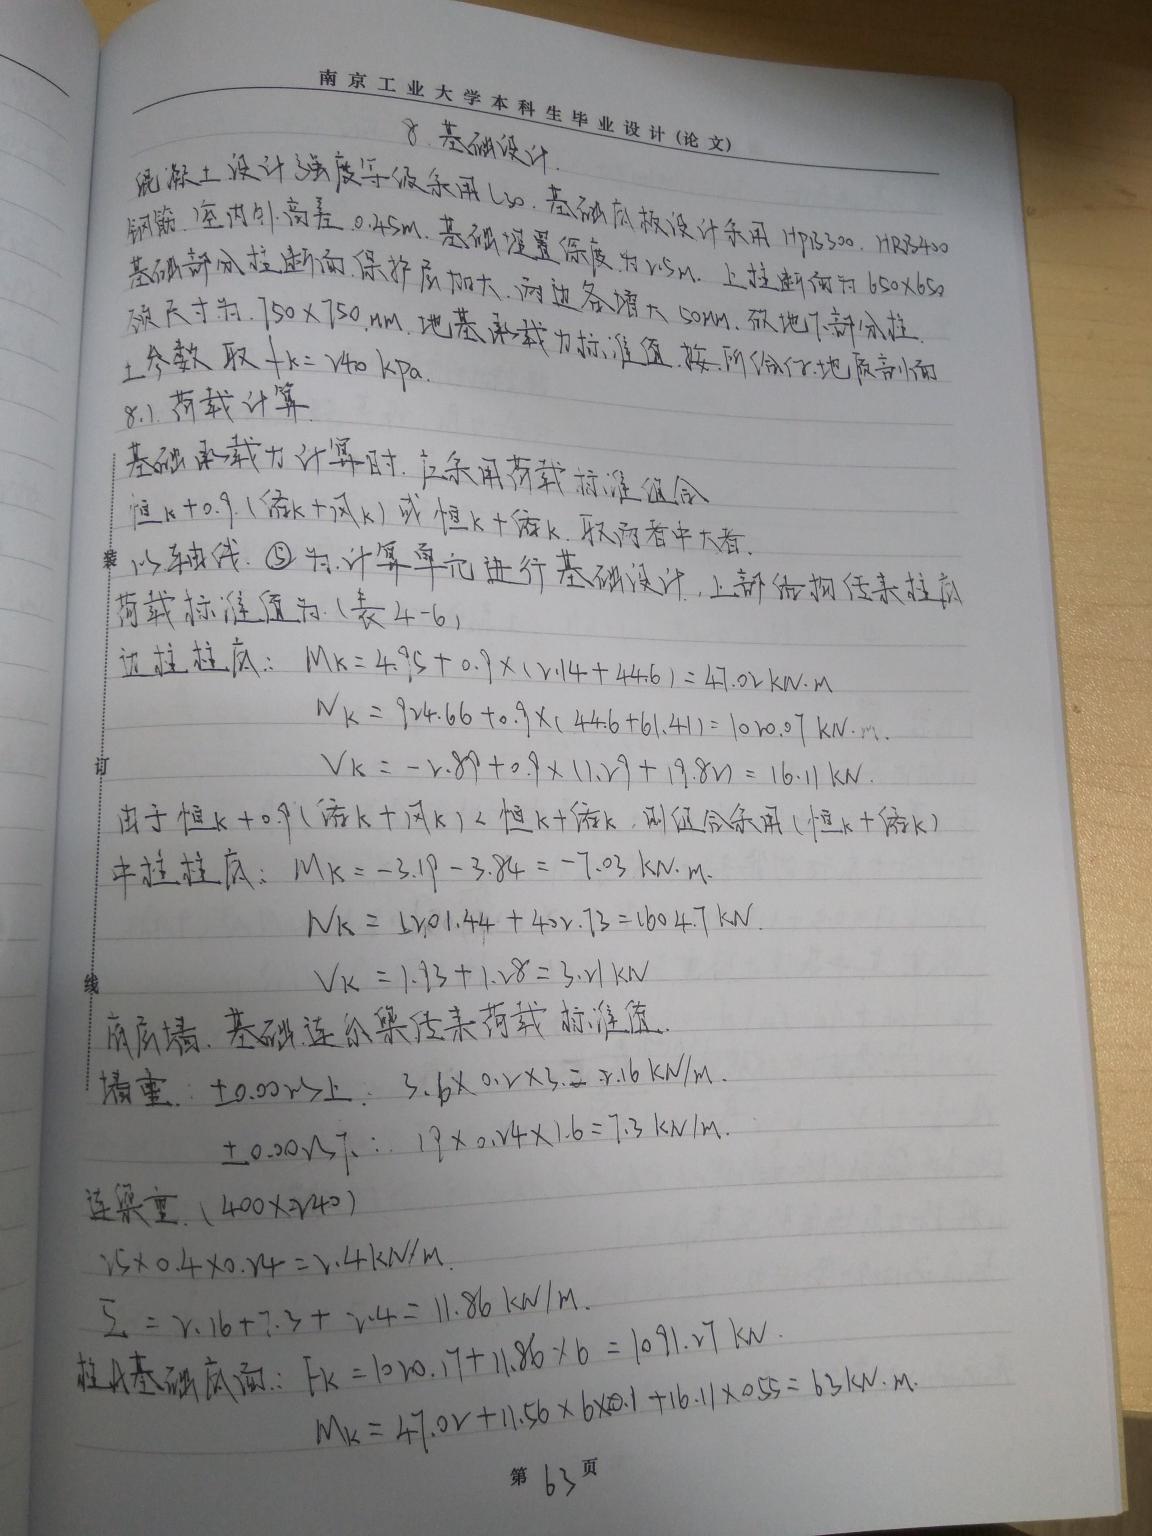 南京工业大学本科生毕业设计(论文)
8.基础设计.
混凝土设计强度等级采用C30.基础底板设计采用HPB300.HRB400
钢筋.室内外高差0.45m.基础埋置深度为2.5m.上柱断面为650×650
基础部分柱断面保护层加大.两边各增大50mm.故地下部分柱
颈尺寸为.750×750mm.地基承载力标准值.按所给行地质剖面
土参数取fk=240kpa.
8.1.荷载计算
基础承载力计算时.应采用荷载标准组合
恒k+0.9.(活k+风k)或恒k+活k.取两者中大者.
以轴线.⑤为.计算单元进行基础设计.上部结构传来柱底
荷载标准值为.(表4-6)
边柱柱底: Mk=4.95+0.9×(2.14+44.6)=47.02kN·m
Nk=924.66+0.9×(44.6+61.41)=1020.07kN·m.
Vk=-2.89+0.9×(1.29+19.82)=16.11kN.
由于恒k+0.9(活k+风k)<恒k+活k.则组合采用(恒k+活k)
中柱柱底: Mk=-3.19-3.84=-7.03kN·m.
Nk=1201.44+402.73=1604.7kN.
Vk=1.93+1.28=3.21kN
底层墙.基础连系梁传来荷载标准值.
墙重: ±0.00以上: 3.6×0.2×3.=2.16kN/m.
±0.00以下: 19×0.24×1.6=7.3kN/m.
连梁重.(400×240)
25×0.4×0.24=2.4kN/m.
Σ=2.16+7.3+2.4=11.86kN/m.
柱A基础底面: Fk=1020.17+11.86×6=1091.27kN.
Mk=47.02+11.56×6×0.1+16.11×0.55=63kN·m.
第63页
装
订
线